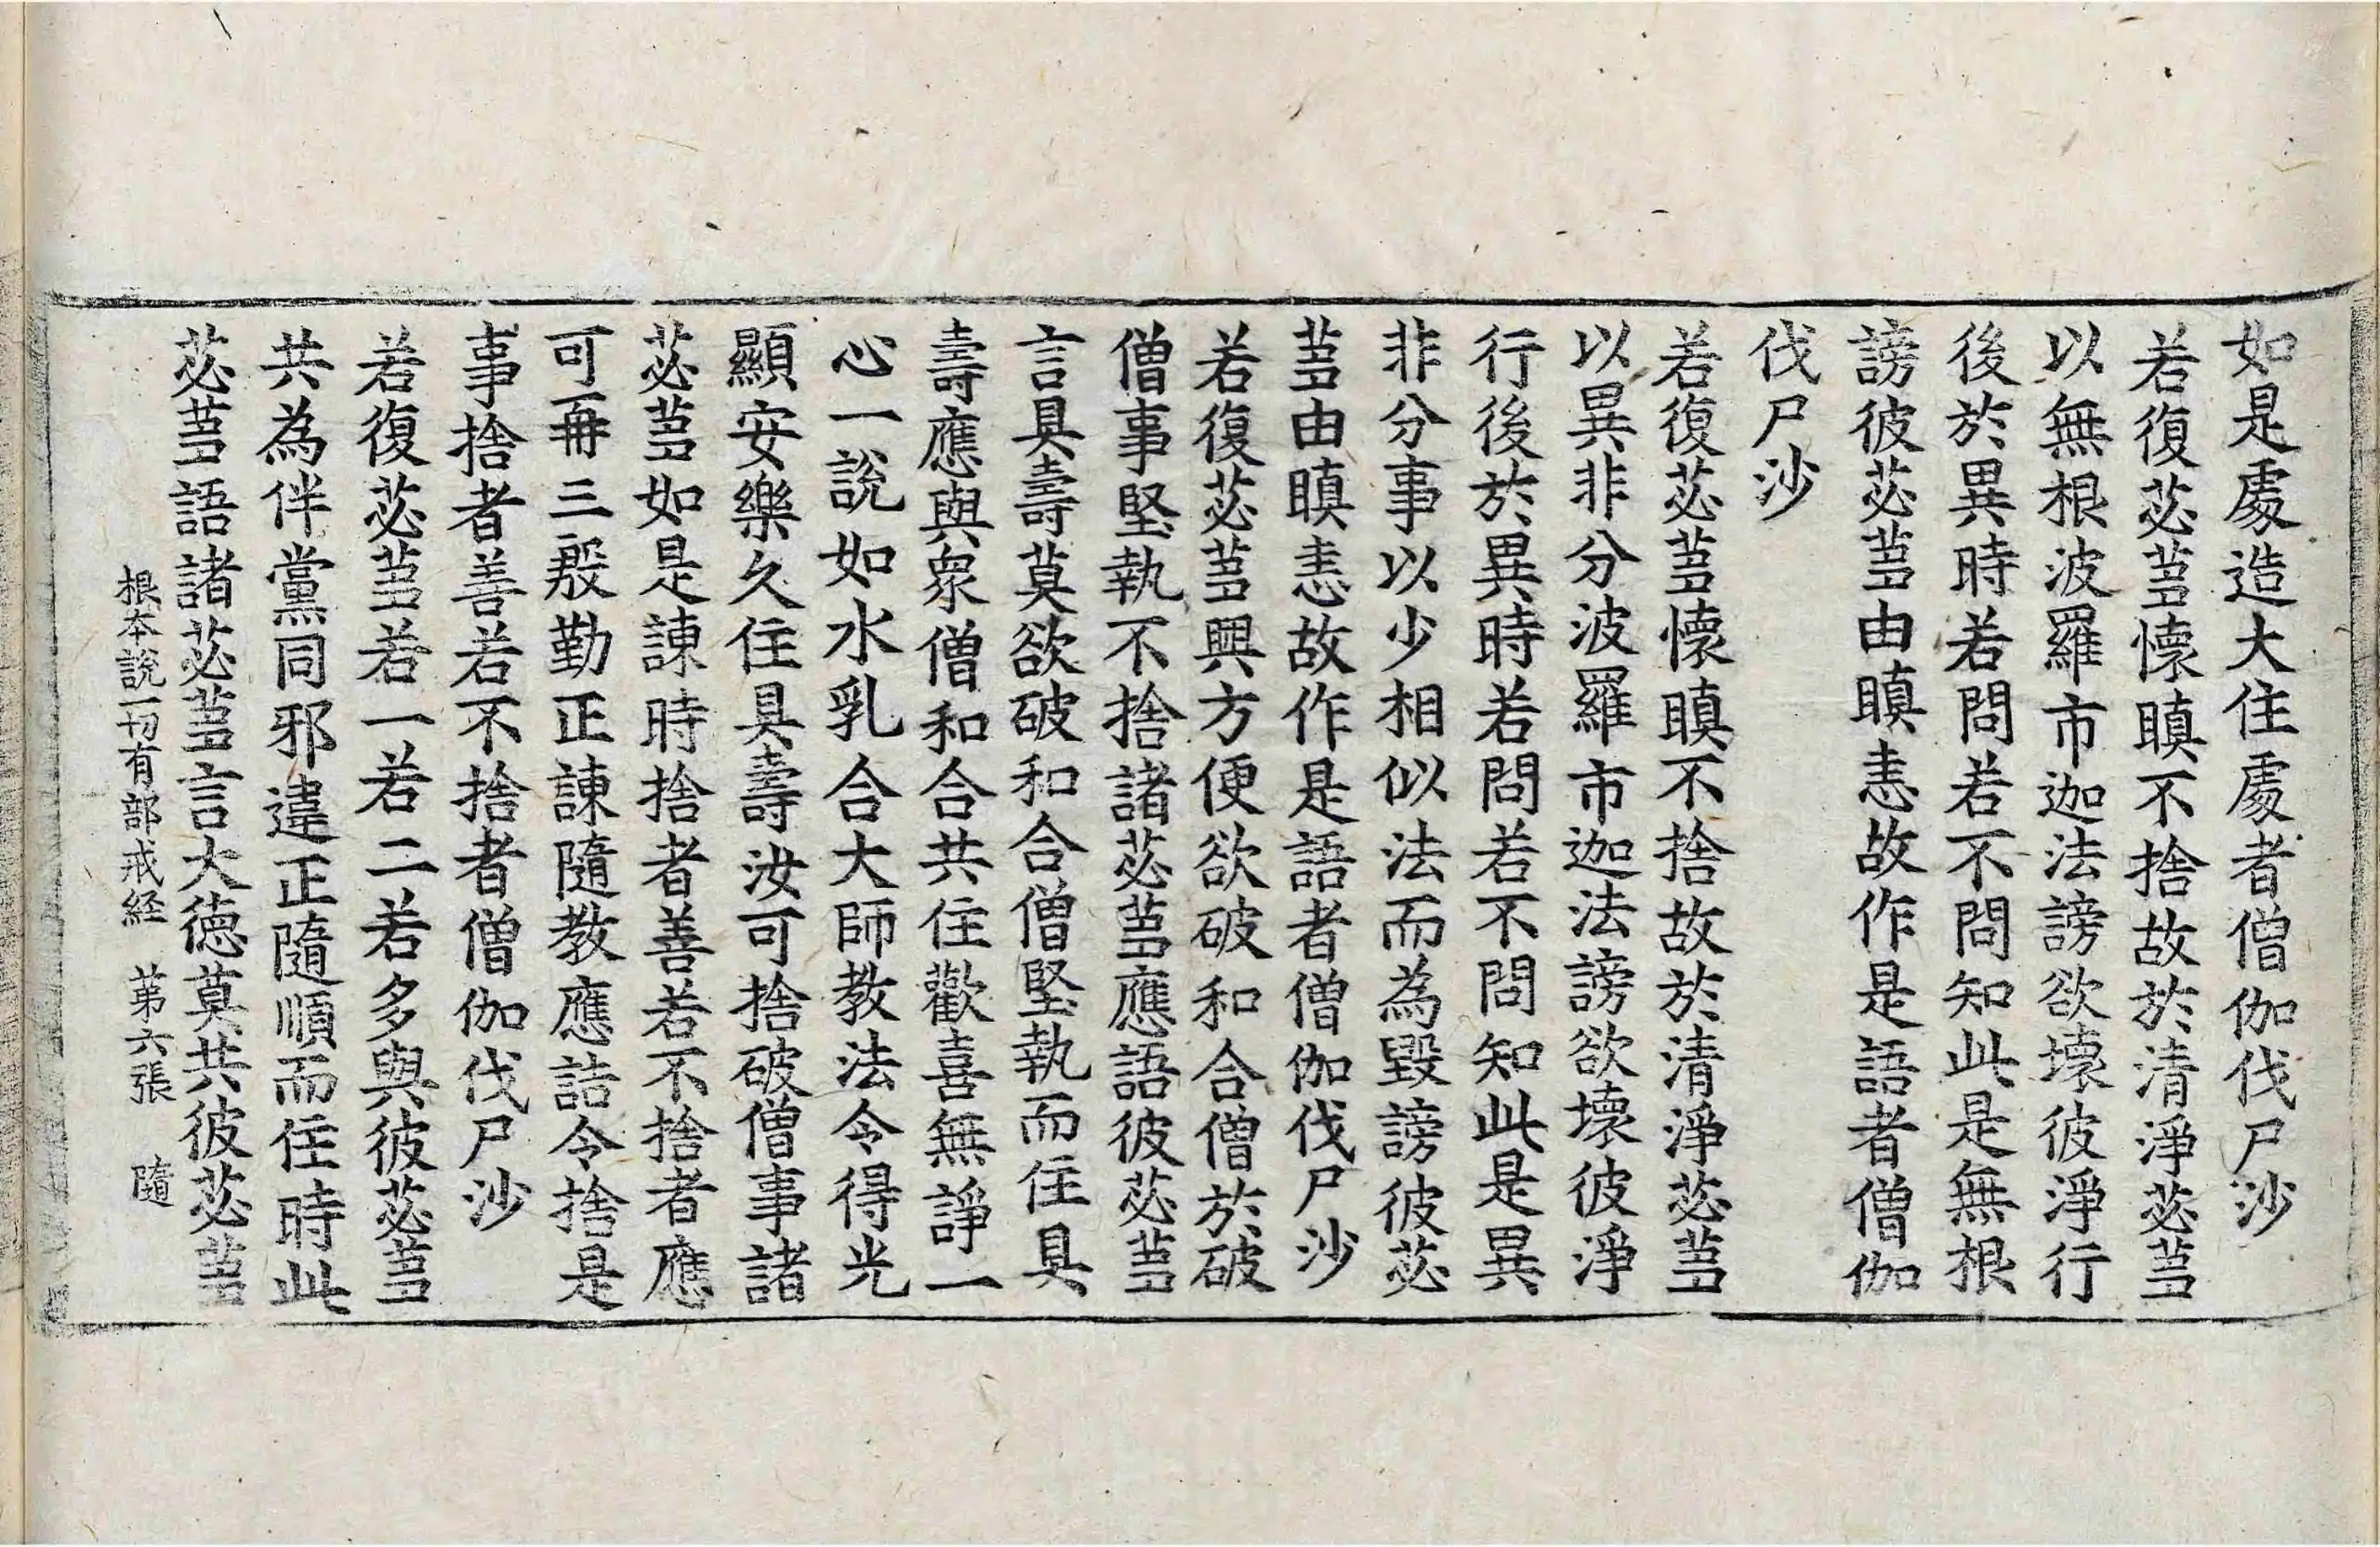 如是處造大住處者僧伽伐尸沙
若復苾蒭懷瞋不捨故於清淨苾蒭
以無根波羅市迦法謗欲壞彼淨行
後於異時若問若不問知此是無根
謗彼苾蒭由瞋恚故作是語者僧伽
伐尸沙
若復苾蒭懷瞋不捨故於清淨苾蒭
以異非分波羅市迦法謗欲壞彼淨
行後於異時若問若不問知此是異
非分事以少相似法而為毀謗彼苾
蒭由瞋恚故作是語者僧伽伐尸沙
若復苾蒭興方便欲破和合僧於破
僧事堅執不捨諸苾蒭應語彼苾蒭
言具壽莫欲破和合僧堅執而住具
壽應與衆僧和合共住歡喜無諍一
心一說如水乳合大師教法令得光
顯安樂久住具壽汝可捨破僧事諸
苾蒭如是諫時捨者善若不捨者應
可再三慇勤正諫隨教應詰令捨是
事捨者善若不捨者僧伽伐尸沙
若復苾蒭若一若二若多與彼苾蒭
共為伴黨同邪違正隨順而住時此
苾蒭語諸苾蒭言大德莫共彼苾蒭
根本說一切有部戒経 第六張 隨